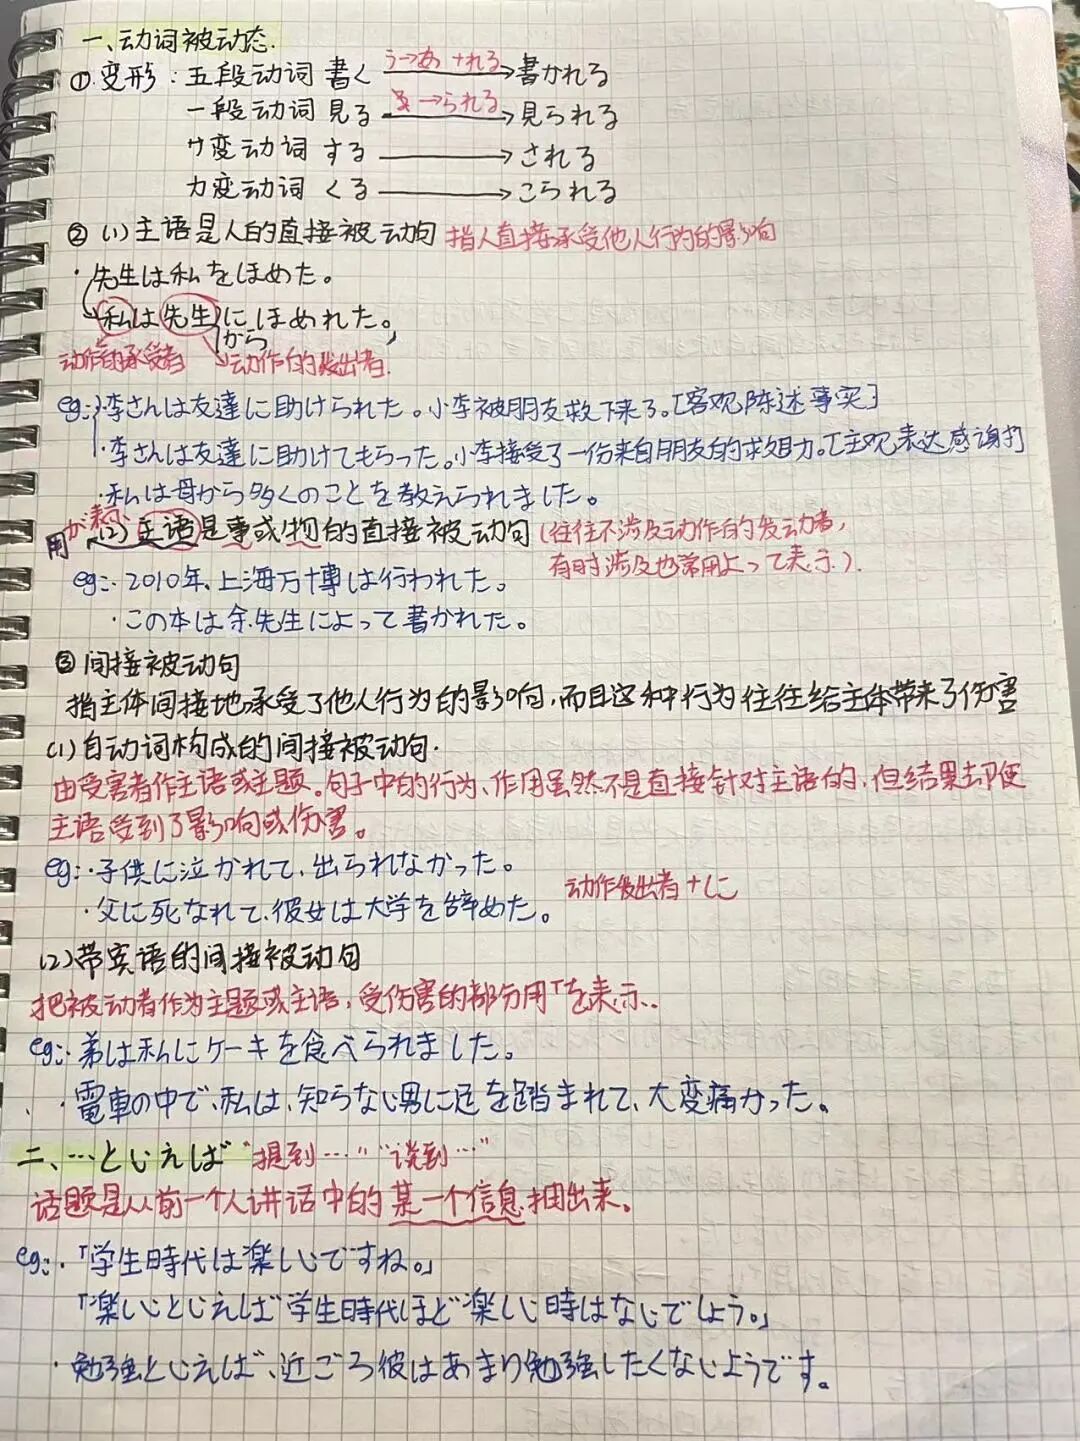 一、动词被动态.
①变形：五段动词 書く う→あ +れる → 書かれる
一段动词 見る る→られる → 見られる
サ变动词 する → される
カ变动词 くる → こられる
② (1)主语是人的直接被动句 指人直接承受他人行为的影响
・先生は私をほめた。
私は先生にほめれた。
から
动作的承受者 动作的发出者.
eg:・李さんは友達に助けられた。小李被朋友救下来了。[客观陈述事实]
・李さんは友達に助けてもらった。小李接受了一份来自朋友的救助力。[主观表达感谢]
・私は母から多くのことを教えられました。
用が表 (2)主语是事或物的直接被动句(往往不涉及动作的发动者，
有时涉及也常用よって表示).
eg:・2010年、上海万博は行われた。
・この本は余先生によって書かれた。
③间接被动句
指主体间接地承受了他人行为的影响,而且这种行为往往给主体带来了伤害
(1)自动词构成的间接被动句.
由受害者作主语或主题。句子中的行为、作用虽然不是直接针对主语的,但结果却使
主语受到了影响或伤害。
eg:・子供に泣かれて、出られなかった。
动作发出者+に
・父に死なれて、彼女は大学を辞めた。
(2)带宾语的间接被动句
把被动者作为主题或主语,受伤害的部分用「を表示.
eg:・弟は私にケーキを食べられました。
・電車の中で、私は、知らない男に足を踏まれて、大変痛かった。
二、…といえば “提到…” “谈到…”
话题是从前一个人讲话中的某一个信息抽出来。
eg:・「学生時代は楽しいですね。」
「楽しいといえば学生時代ほど楽しい時はないでしょう。」
・勉強といえば、近ごろ彼はあまり勉強したくないようです。